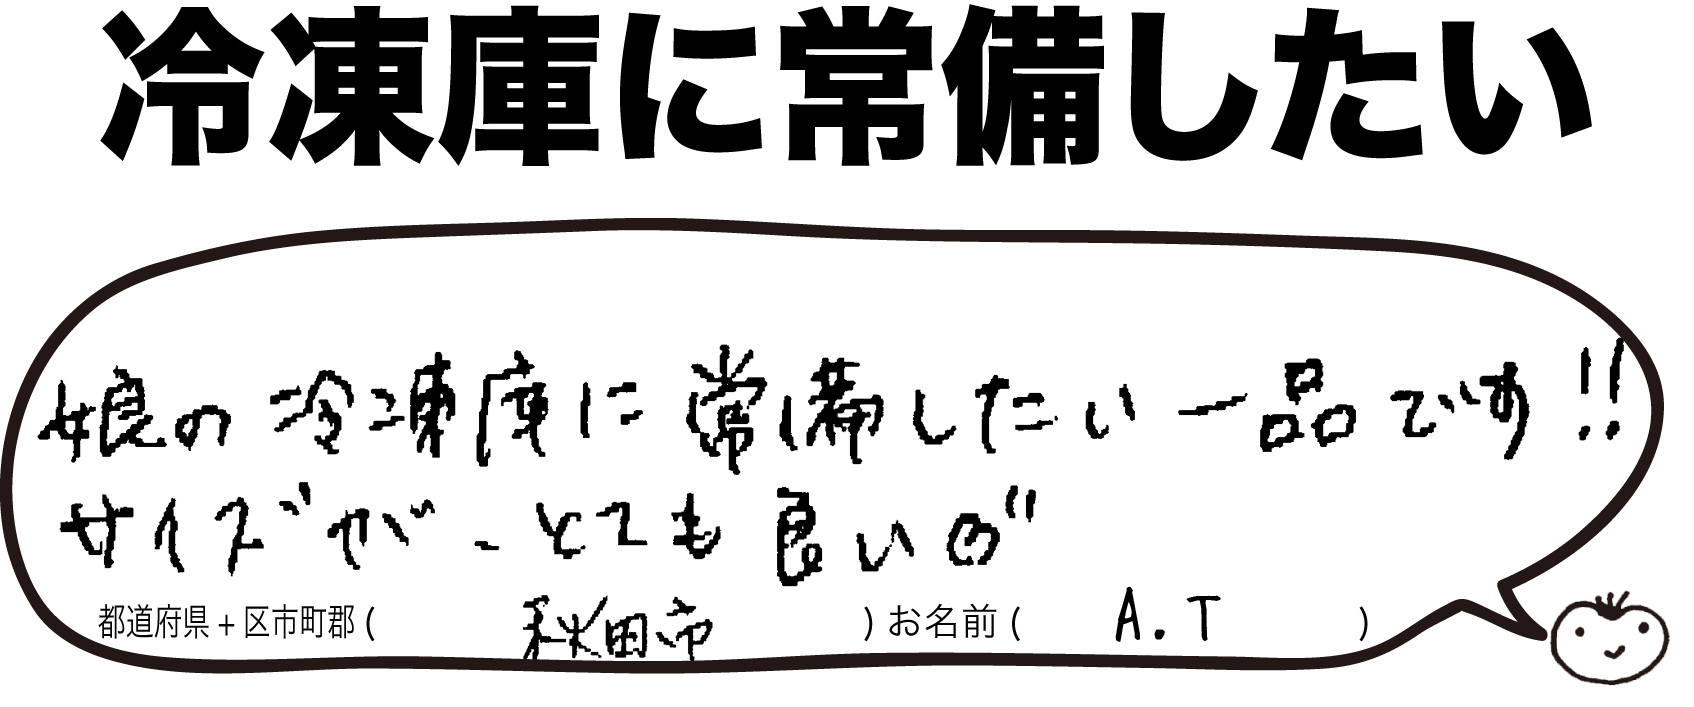 冷凍庫に常備したい
娘の冷凍庫に常備したい一品です!!
サイズが、とても良いの"
都道府県+区市町郡(秋田市)お名前(A.T)